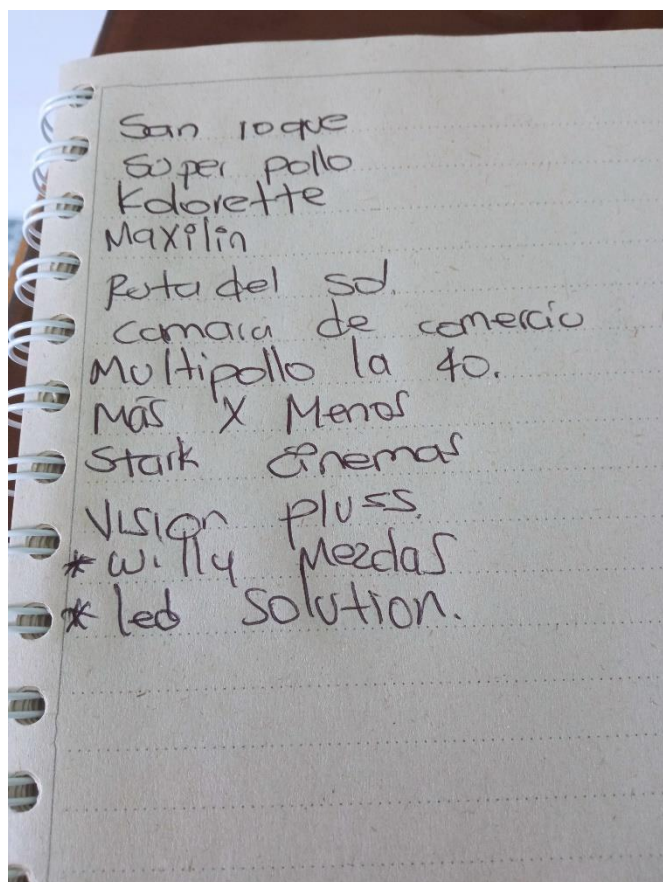 San roque
Super pollo
Kolorette
Maxilin
Ruta del sol.
camara de comercio
Multipollo la 40.
Más X Menos
Stark cinemas
Vision pluss.
* Willy Mezclas
* led solution.